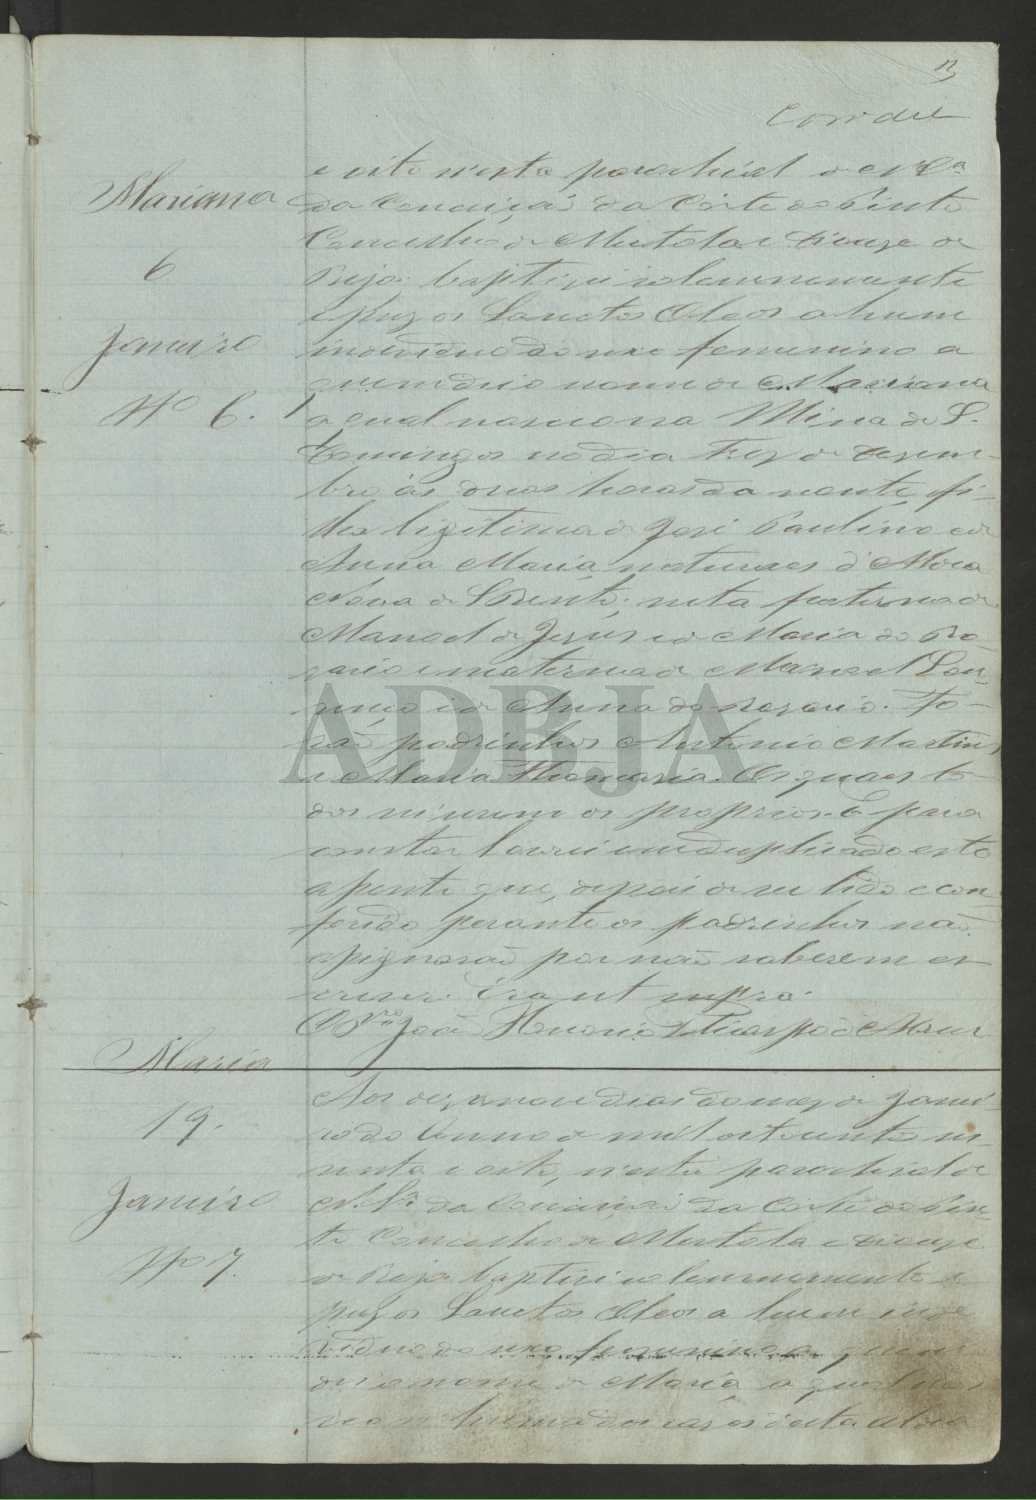 Mariana
6
Janeiro
Nº 6.
e oito n'esta parochial de N. Sª
da Conceição da Corte do Pinto
Concelho de Mertola e Diocese de
Beja baptizei solemnemente
e puz os Sanctos Oleos a hum
individuo do sexo femenino a
quem dei o nome de Mariana
a qual nasceo na Mina de S.
Domingos no dia trez de Dezem-
bro ás duas horas da noute, fi-
lha legitima de José Paulino e de
Anna Maria, naturaes d'
; neta paterna de
Manoel de Jesus e de Maria do Ro-
zario e materna de Manoel Lou-
renço e de Anna do Rozario. Fo-
rão padrinhos Antonio Martins
e Maria. Os quaes to-
dos sei serem os proprios. E para
constar lavrei em duplicado este
assento que, depois de ser lido e con-
ferido perante os padrinhos não
assignarão por não saberem es-
crever. Era ut supra.
João
Maria
19.
Janeiro
Nº 7.
Aos dezanove dias do mez de Janei-
ro do anno de mil oitocentos se-
ssenta e oito, n'esta parochial de
N. Sª da Conceição da Corte do Pin-
to Concelho de Mertola e Diocese
de Beja baptizei solemnemente e
puz os Sanctos Oleos a hum indi-
viduo do sexo femenino a quem
dei o nome de Maria a qual nas-
ceo
ADBJA